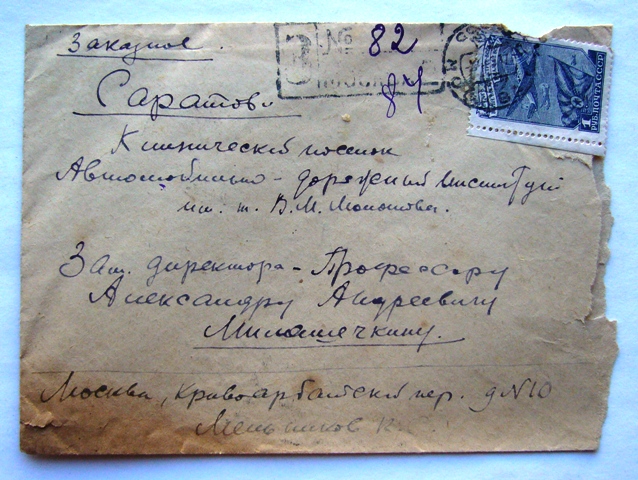 Заказное.
№ 82
З
МОСКВА
84
1 РУБ. ПОЧТА СССР
Саратов.
Клинический поселок
Автомобильно-дорожный Институт
им. т. В. М. Молотова.
Зам. директора - Профессору
Александру Андреевичу
Милашечкину.
Москва, Кривоарбатский пер. д №10
Меньшиков К.